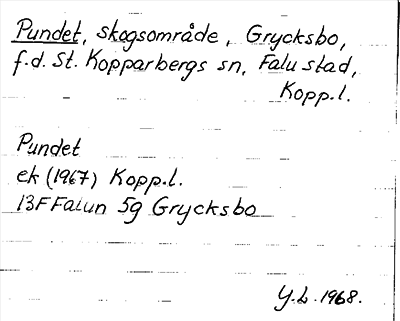 Pundet, skogsområde, Grycksbo,
f.d. St. Kopparbergs sn, Falu stad,
Kopp.l.
Pundet
ek (1967) Kopp.l.
13F Falun 5g Grycksbo
Y.L. 1968.